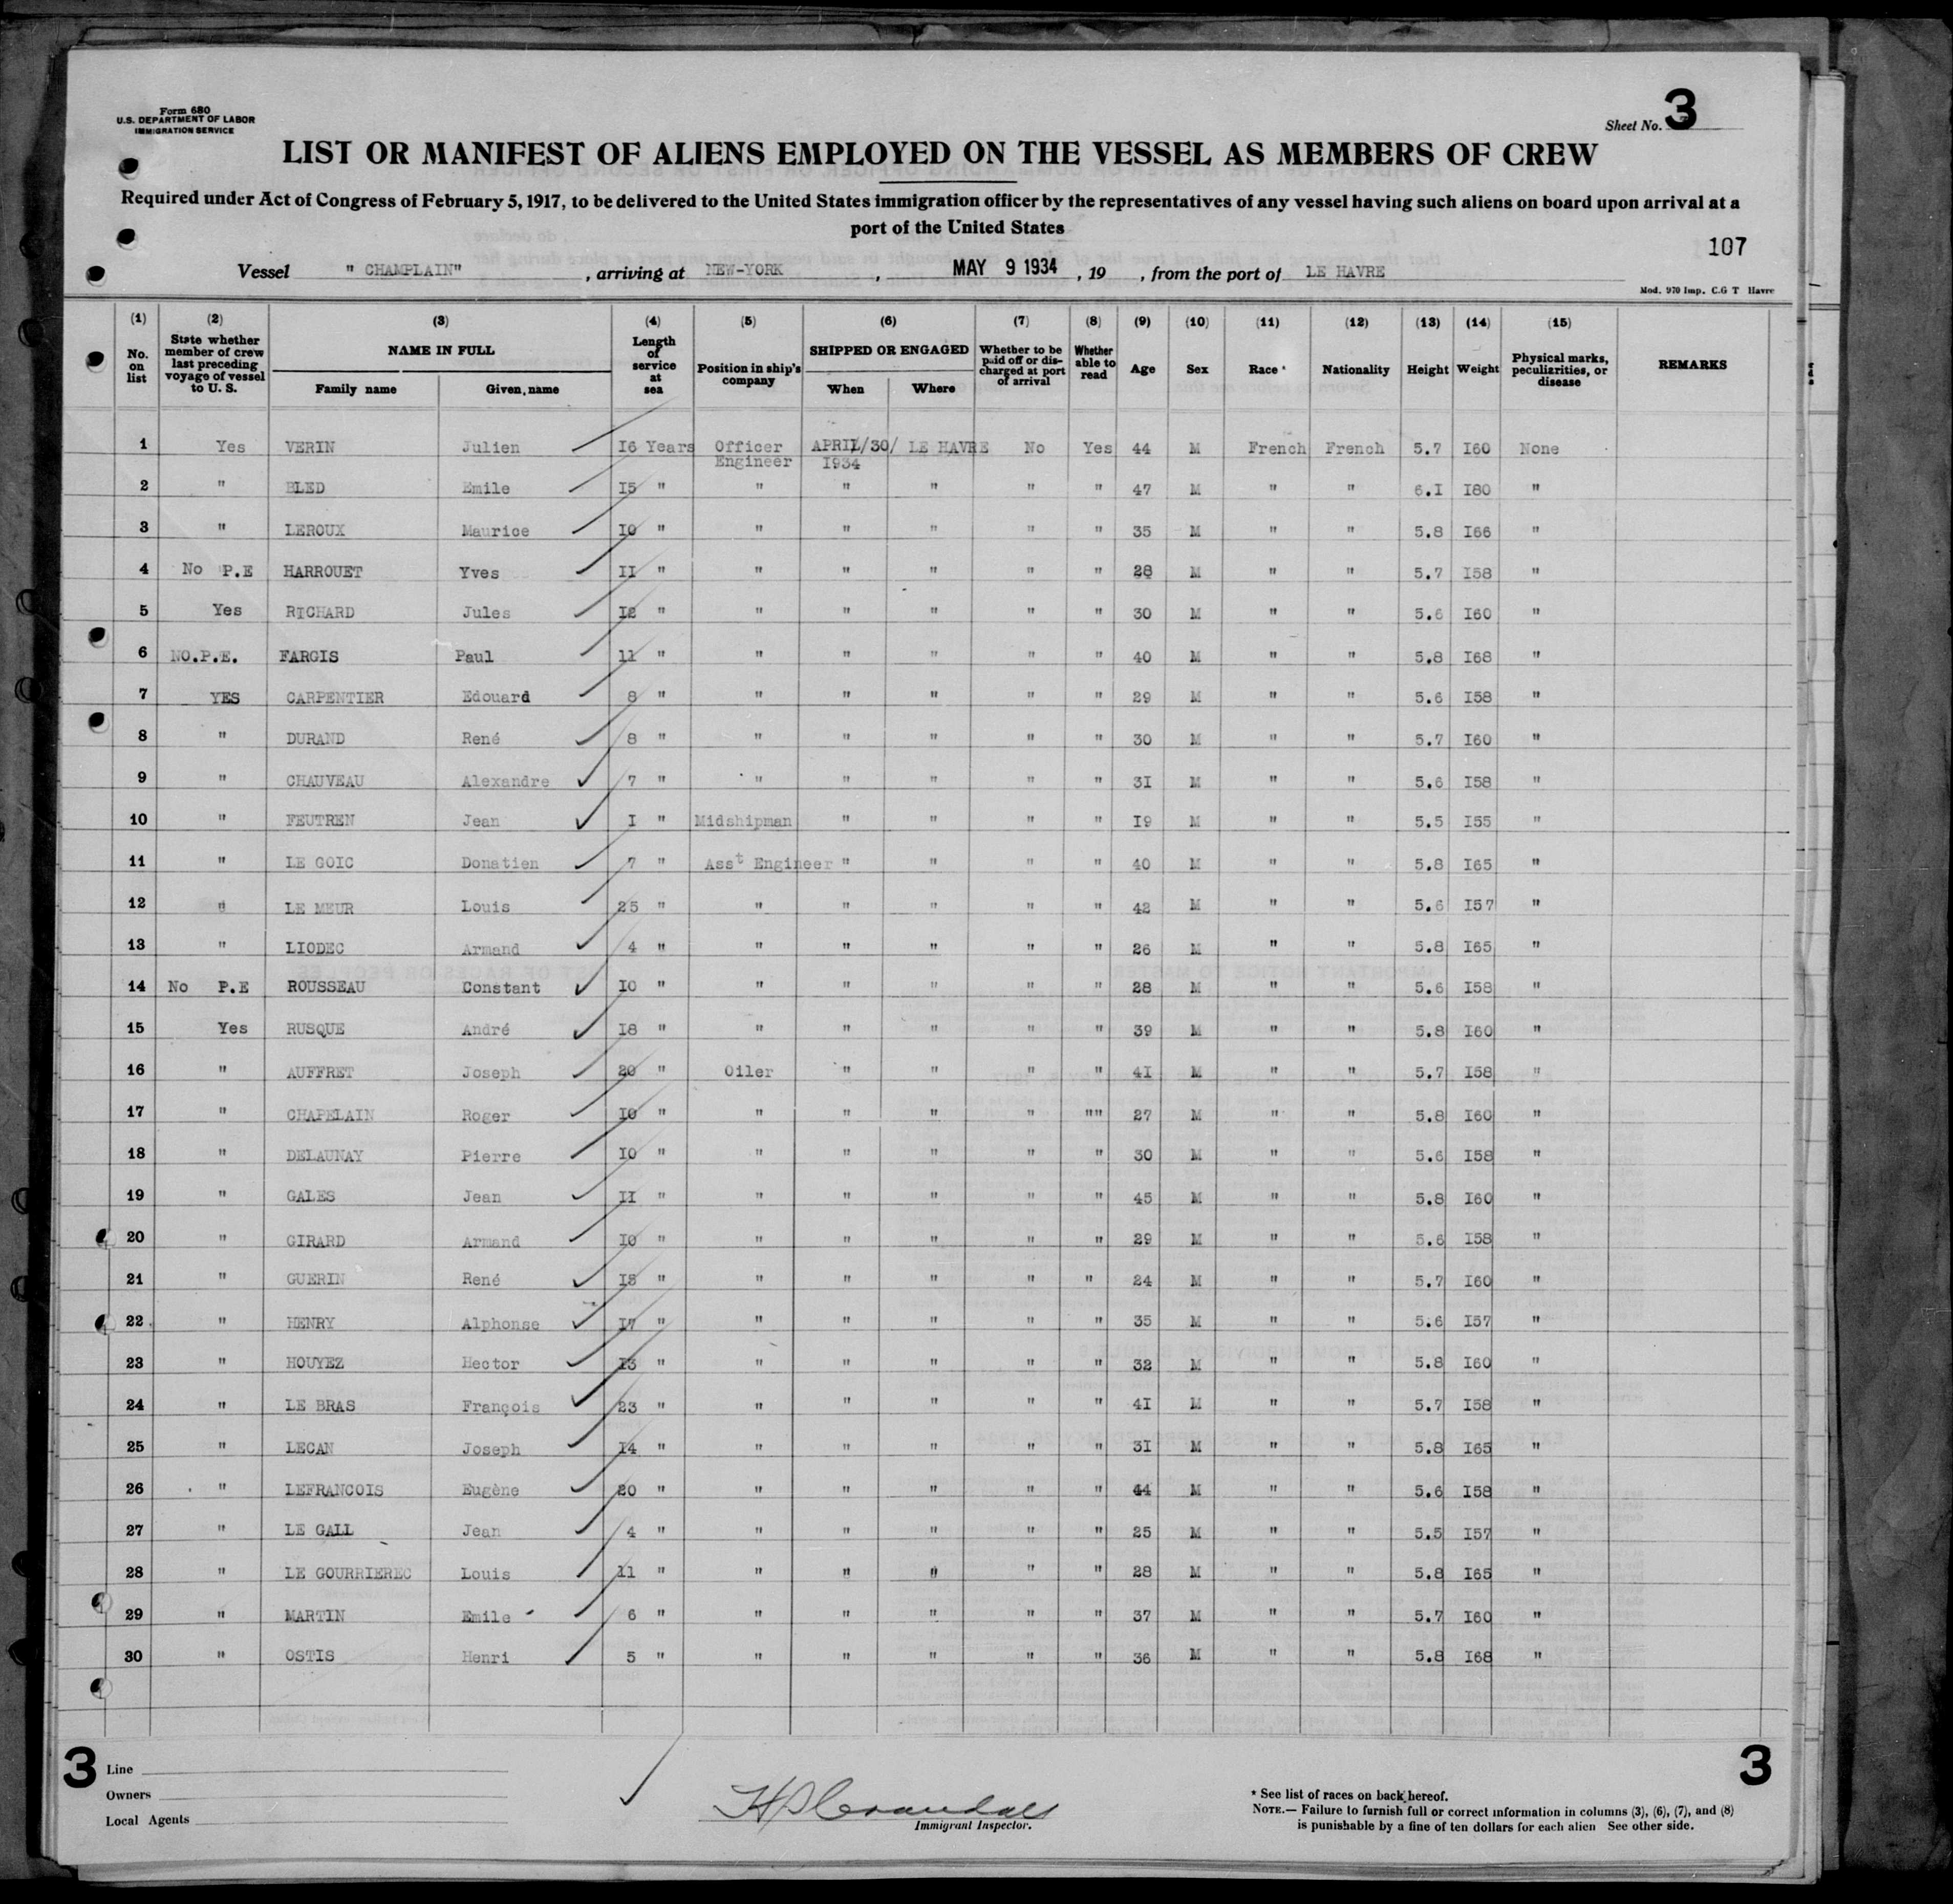 Form 680
U.S. DEPARTMENT OF LABOR
IMMIGRATION SERVICE
Sheet No. 3
LIST OR MANIFEST OF ALIENS EMPLOYED ON THE VESSEL AS MEMBERS OF CREW
Required under Act of Congress of February 5, 1917, to be delivered to the United States immigration officer by the representatives of any vessel having such aliens on board upon arrival at a
port of the United States
107
Vessel " CHAMPLAIN" , arriving at NEW-YORK , MAY 9 1934 , 19 , from the port of LE HAVRE
Mod. 970 Imp. C.G T Havre
(1) (2) (3) (4) (5) (6) (7) (8) (9) (10) (11) (12) (13) (14) (15)
No. on list State whether member of crew last preceding voyage of vessel to U. S. NAME IN FULL Family name Given name Length of service at sea Position in ship's company SHIPPED OR ENGAGED When Where Whether to be paid off or discharged at port of arrival Whether able to read Age Sex Race * Nationality Height Weight Physical marks, peculiarities, or disease REMARKS
1 Yes VERIN Julien 16 Years Officer APRIL/30/ LE HAVRE No Yes 44 M French French 5.7 I60 None
Engineer I934
2 " BLED Emile I5 " " " " " " 47 M " " 6.I I80 "
3 " LEROUX Maurice I0 " " " " " " 35 M " " 5.8 I66 "
4 No P.E HARROUET Yves II " " " " " " 28 M " " 5.7 I58 "
5 Yes RICHARD Jules I2 " " " " " " 30 M " " 5.6 I60 "
6 NO.P.E. FARGIS Paul 11 " " " " " " 40 M " " 5.8 I68 "
7 YES CARPENTIER Edouard 8 " " " " " " 29 M " " 5.6 I58 "
8 " DURAND René 8 " " " " " " 30 M " " 5.7 I60 "
9 " CHAUVEAU Alexandre 7 " " " " " " 3I M " " 5.6 I58 "
10 " FEUTREN Jean I " Midshipman " " " " I9 M " " 5.5 I55 "
11 " LE GOIC Donatien 7 " Asst Engineer " " " " 40 M " " 5.8 I65 "
12 " LE MEUR Louis 25 " " " " " " 42 M " " 5.6 I57 "
13 " LIODEC Armand 4 " " " " " " 26 M " " 5.8 I65 "
14 No P.E ROUSSEAU Constant I0 " " " " " " 28 M " " 5.6 I58 "
15 Yes RUSQUE André I8 " " " " " " 39 M " " 5.8 I60 "
16 " AUFFRET Joseph 20 " Oiler " " " " 4I M " " 5.7 I58 "
17 " CHAPELAIN Roger I0 " " " " " "" 27 M " " 5.8 I60 "
18 " DELAUNAY Pierre I0 " " " " " " 30 M " " 5.6 I58 "
19 " GALES Jean II " " " " " " 45 M " " 5.8 I60 "
20 " GIRARD Armand I0 " " " " " " 29 M " " 5.6 I58 "
21 " GUERIN René " " " " " " 24 M " " 5.7 I60 "
22 " HENRY Alphonse I7 " " " " " " 35 M " " 5.6 I57 "
23 " HOUYEZ Hector I3 " " " " " " 32 M " " 5.8 I60 "
24 " LE BRAS François 23 " " " " " " 4I M " " 5.7 I58 "
25 " LECAN Joseph I4 " " " " " " 3I M " " 5.8 I65 "
26 " LEFRANCOIS Eugène 20 " " " " " " 44 M " " 5.6 I58 "
27 " LE GALL Jean 4 " " " " " " 25 M " " 5.5 I57 "
28 " LE GOURRIEREC Louis 11 " " " " " " 28 M " " 5.8 I65 "
29 " MARTIN Emile 6 " " " " " " 37 M " " 5.7 I60 "
30 " OSTIS Henri 5 " " " " " " 36 M " " 5.8 I68 "
3 3
Line
Owners
Local Agents
Immigrant Inspector.
* See list of races on back hereof.
NOTE.— Failure to furnish full or correct information in columns (3), (6), (7), and (8)
is punishable by a fine of ten dollars for each alien See other side.